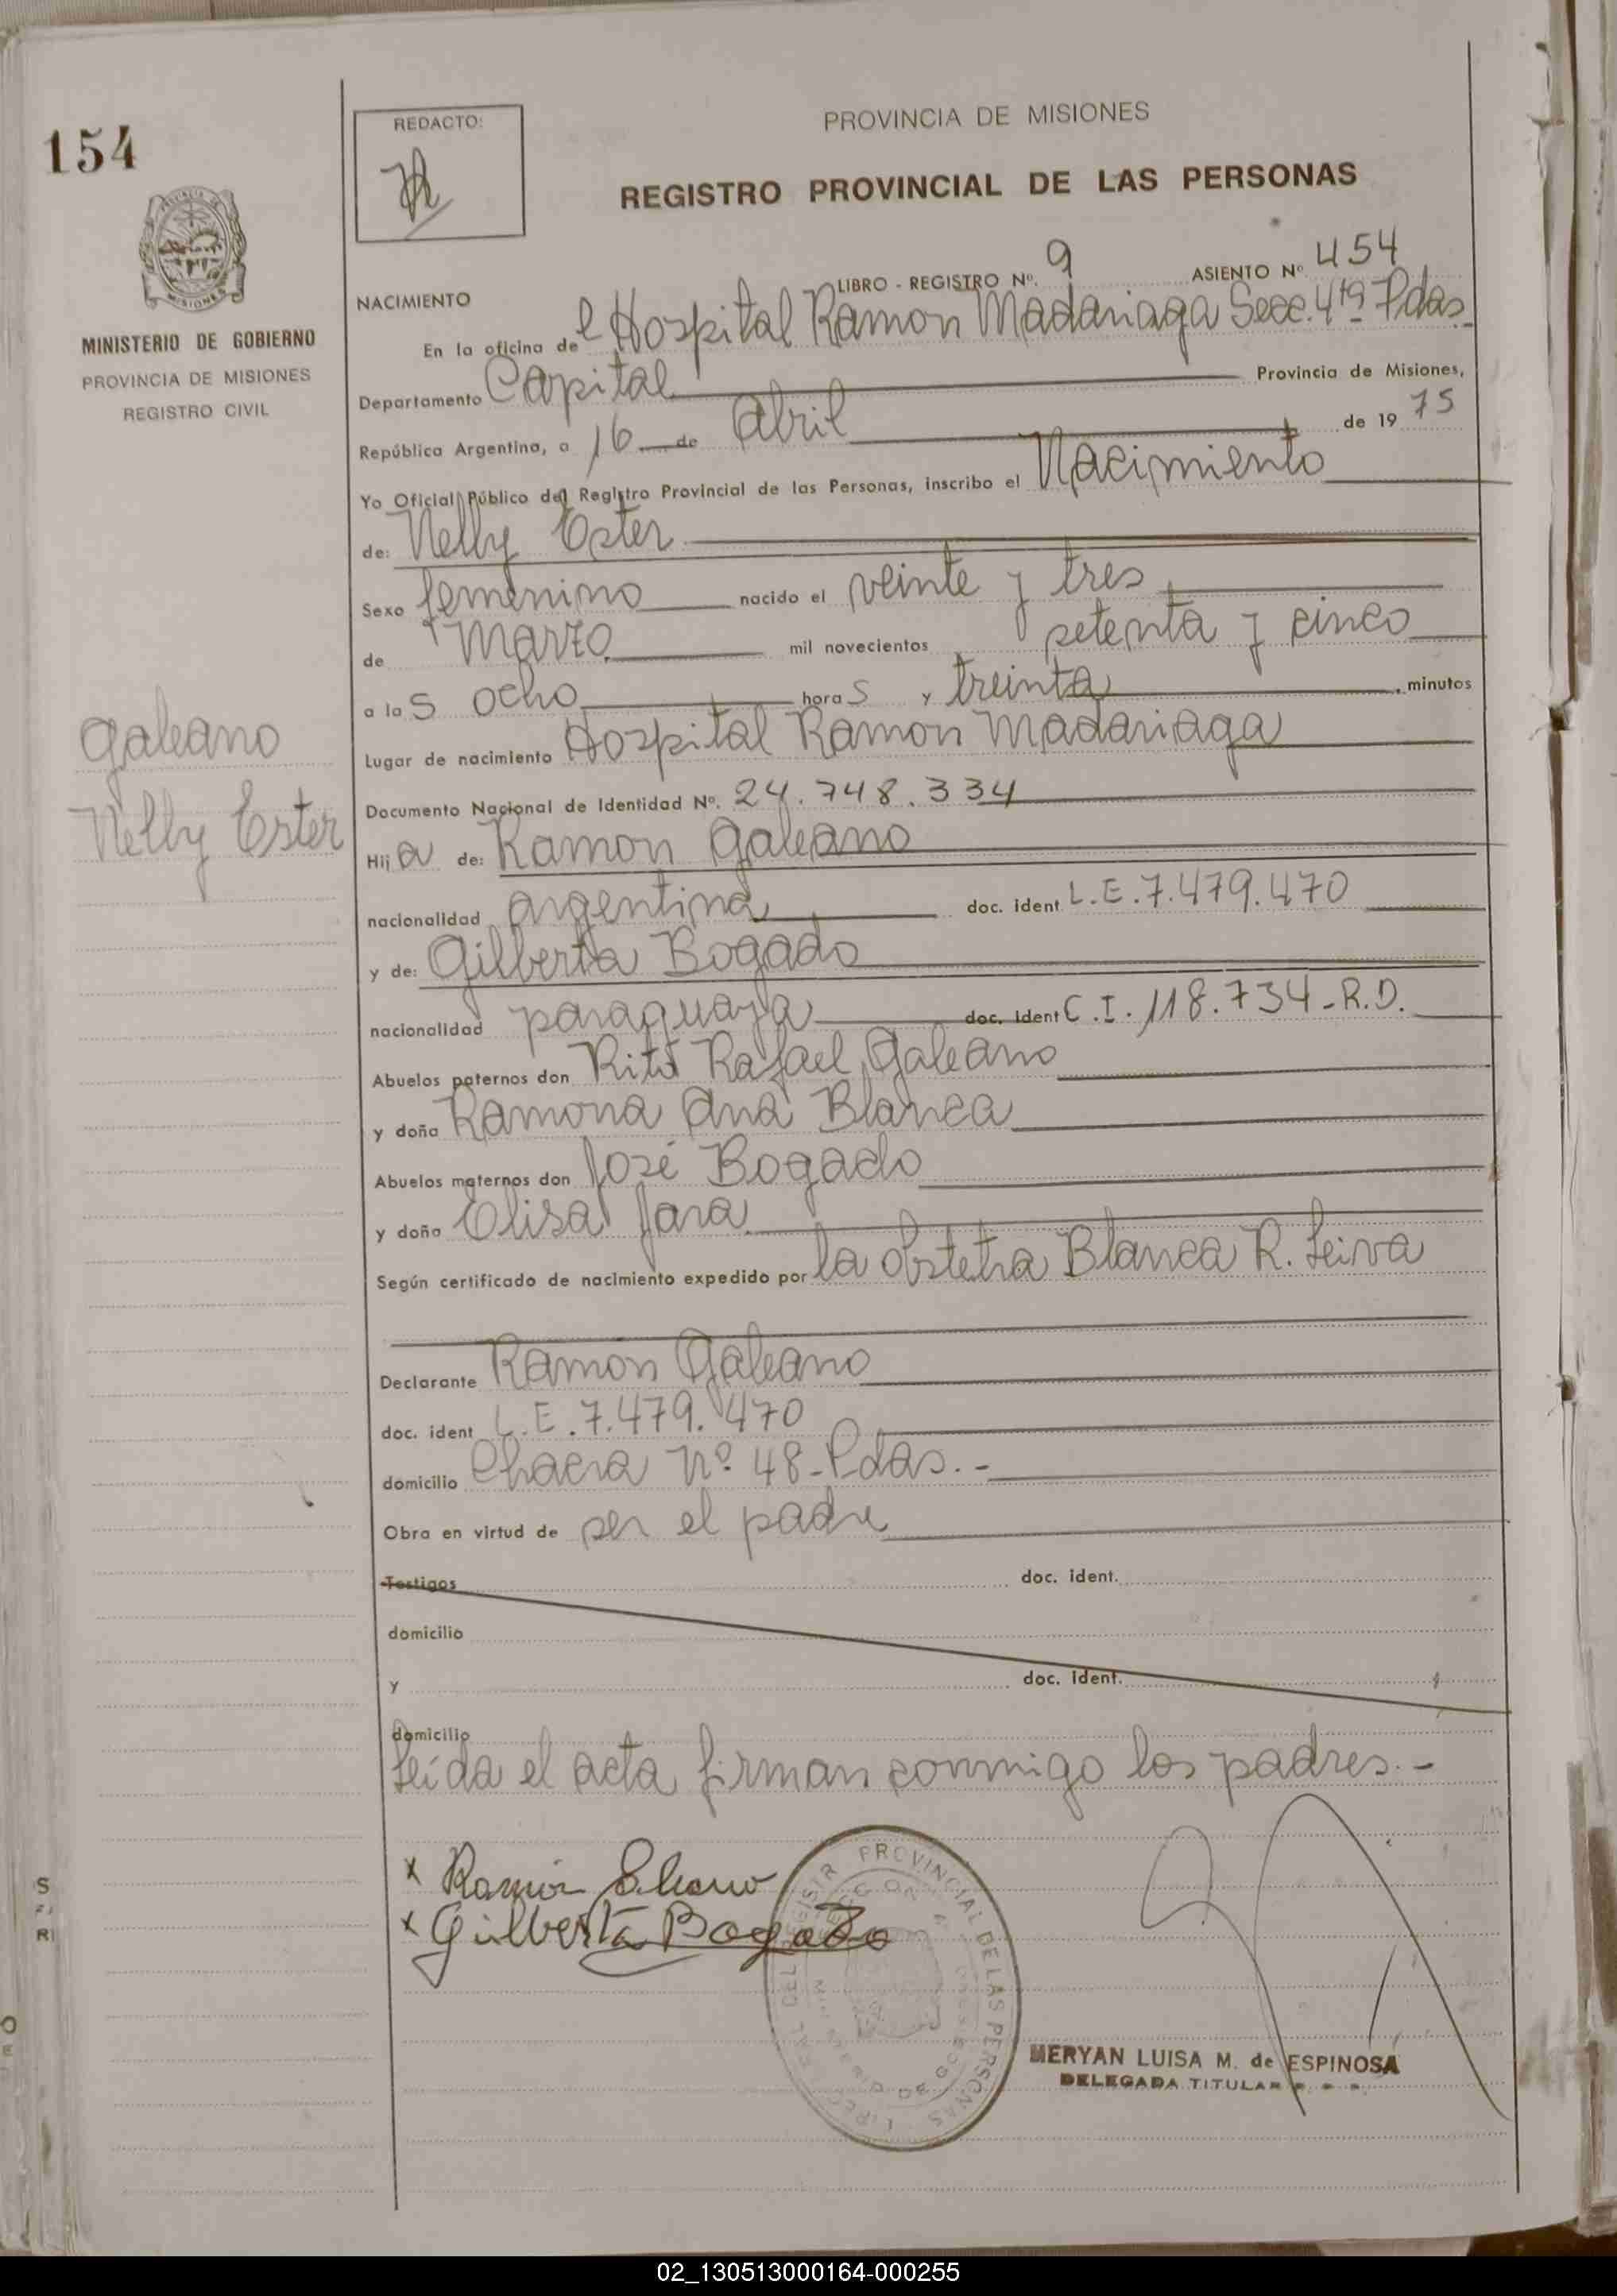 154
REDACTO:
PROVINCIA DE MISIONES
REGISTRO PROVINCIAL DE LAS PERSONAS
MISIONES
MINISTERIO DE GOBIERNO
PROVINCIA DE MISIONES
REGISTRO CIVIL
LIBRO - REGISTRO Nº. 9 ASIENTO Nº 454
NACIMIENTO
En la oficina del Hospital Ramon Madariaga Secc. 4ta Pdas
Departamento Capital Provincia de Misiones,
República Argentina, a 16 de Abril de 1975
Yo Oficial Público del Registro Provincial de las Personas, inscribo el Nacimiento
de: Nelly Ester
Sexo femenino nacido el veinte y tres
de Marzo mil novecientos setenta y cinco
a las ocho horas y treinta minutos
Lugar de nacimiento Hospital Ramon Madariaga
Galeano
Nelly Ester
Documento Nacional de Identidad Nº. 24.748.334
Hija de: Ramon Galeano
nacionalidad argentina doc. ident L.E.7.479.470
y de: Gilberta Bogado
nacionalidad paraguaya doc. ident C.I. 118.734-R.D.
Abuelos paternos don Rito Rafael Galeano
y doña Ramona Ana Blanca
Abuelos maternos don José Bogado
y doña Elisa Jara
Según certificado de nacimiento expedido por la obstetra Blanca R. Leiva
Declarante Ramón Galeano
doc. ident L.E.7.479.470
domicilio Chacra Nº 48-Pdas.-
Obra en virtud de ser el padre
Testigos doc. ident.
domicilio
y doc. ident.
domicilio
Leída el acta firman conmigo los padres.-
x Ramón Galeano
x Gilberta Bogado
PROVINCIAL DE LAS PERSONAS
MERYAN LUISA M. de ESPINOSA
DELEGADA TITULAR
02_130513000164-000255